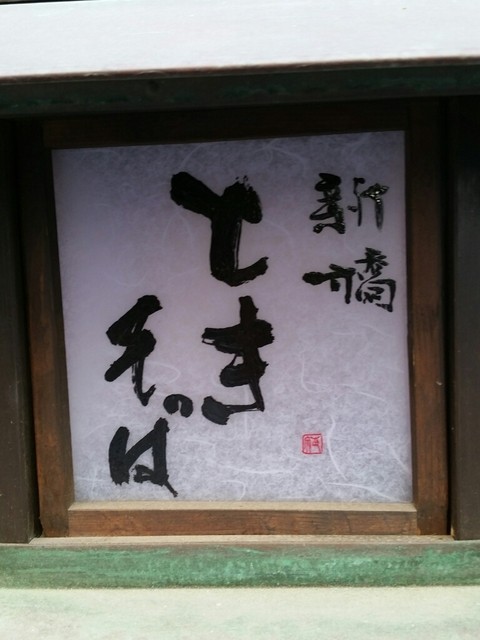 新橋
とき
そば